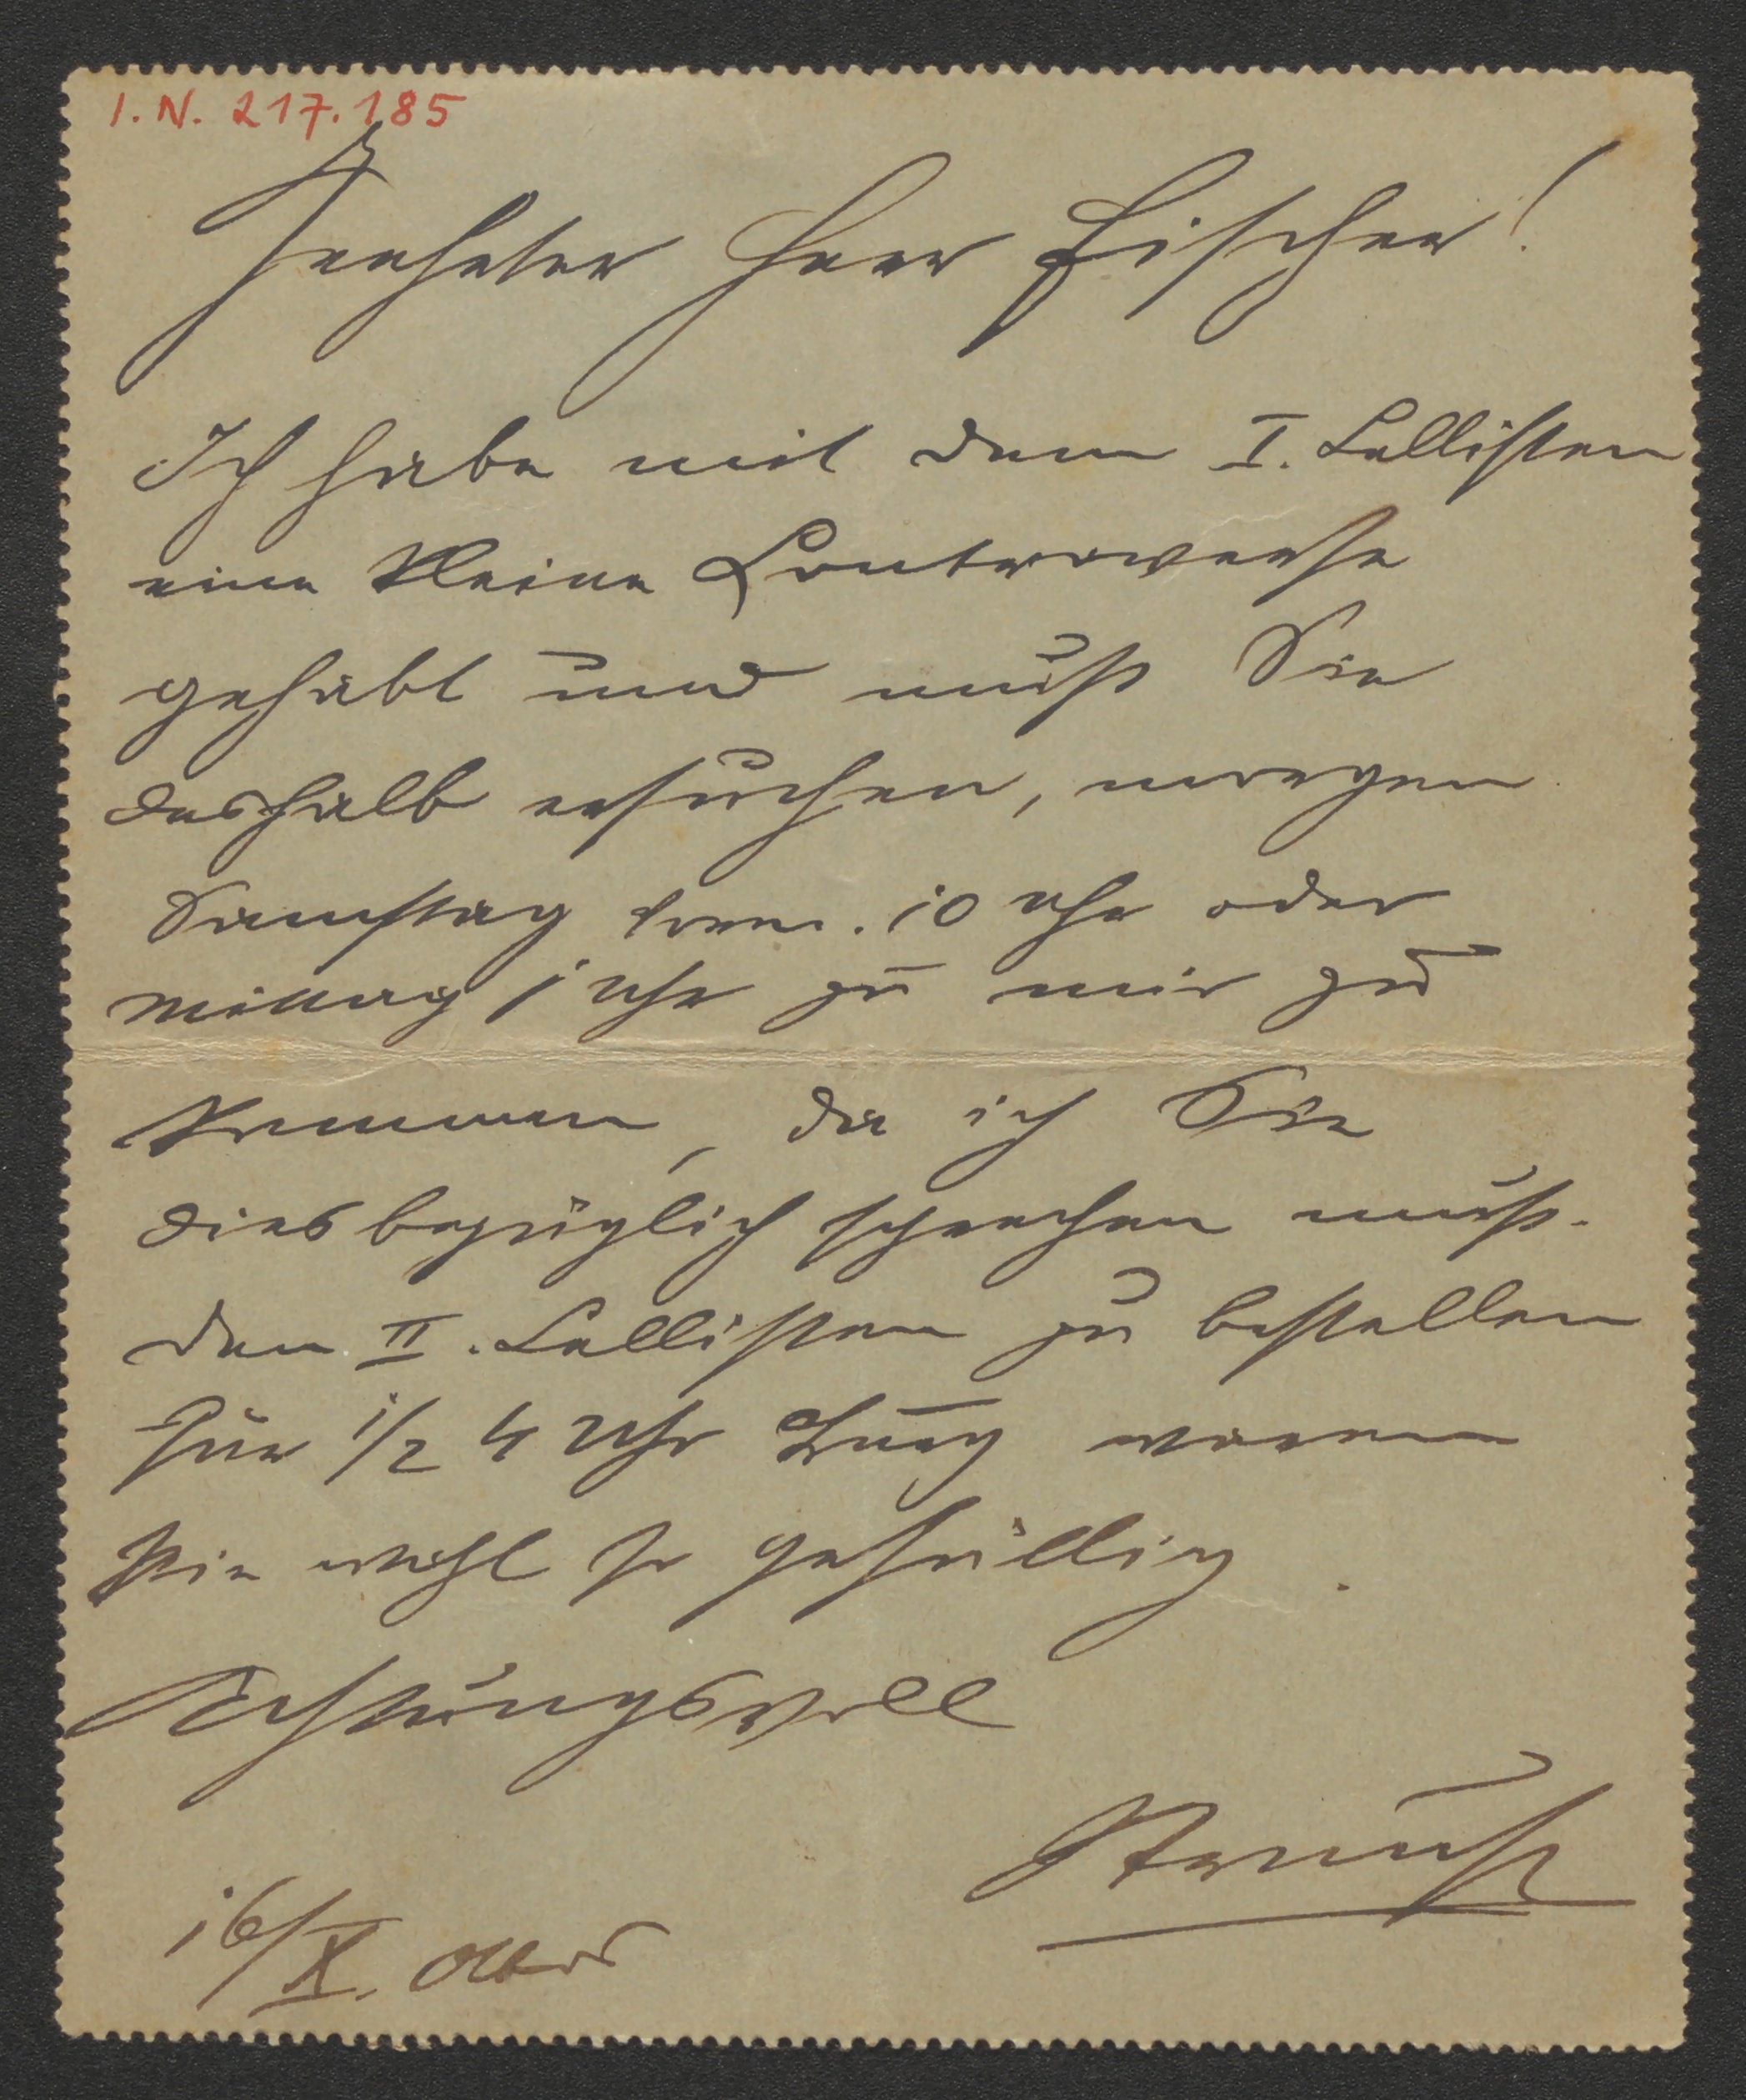 I. N. 217.185
Geehrter Herr Fischer!
Ich habe mit dem I. Cellisten
eine kleine Controverse
gehabt und muß Sie
deshalb ersuchen, morgen
Samstag vorm. 10 Uhr oder
mittag 1 Uhr zu mir zu
kommen, da ich Sie
diesbezüglich sprechen muß.
Den II. Cellisten zu bestellen
für ½ 4 Uhr waren
Sie wohl so gefällig.
Achtungsvoll
Strauß
16/X.